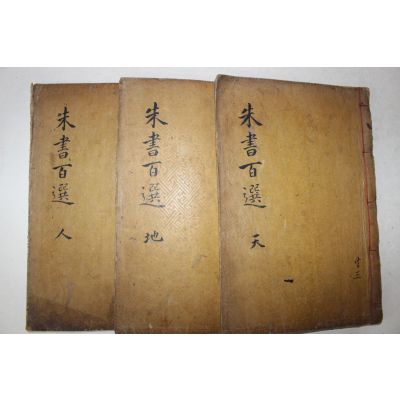 朱書百選 天
一
共三
朱書百選 地
朱書百選 人